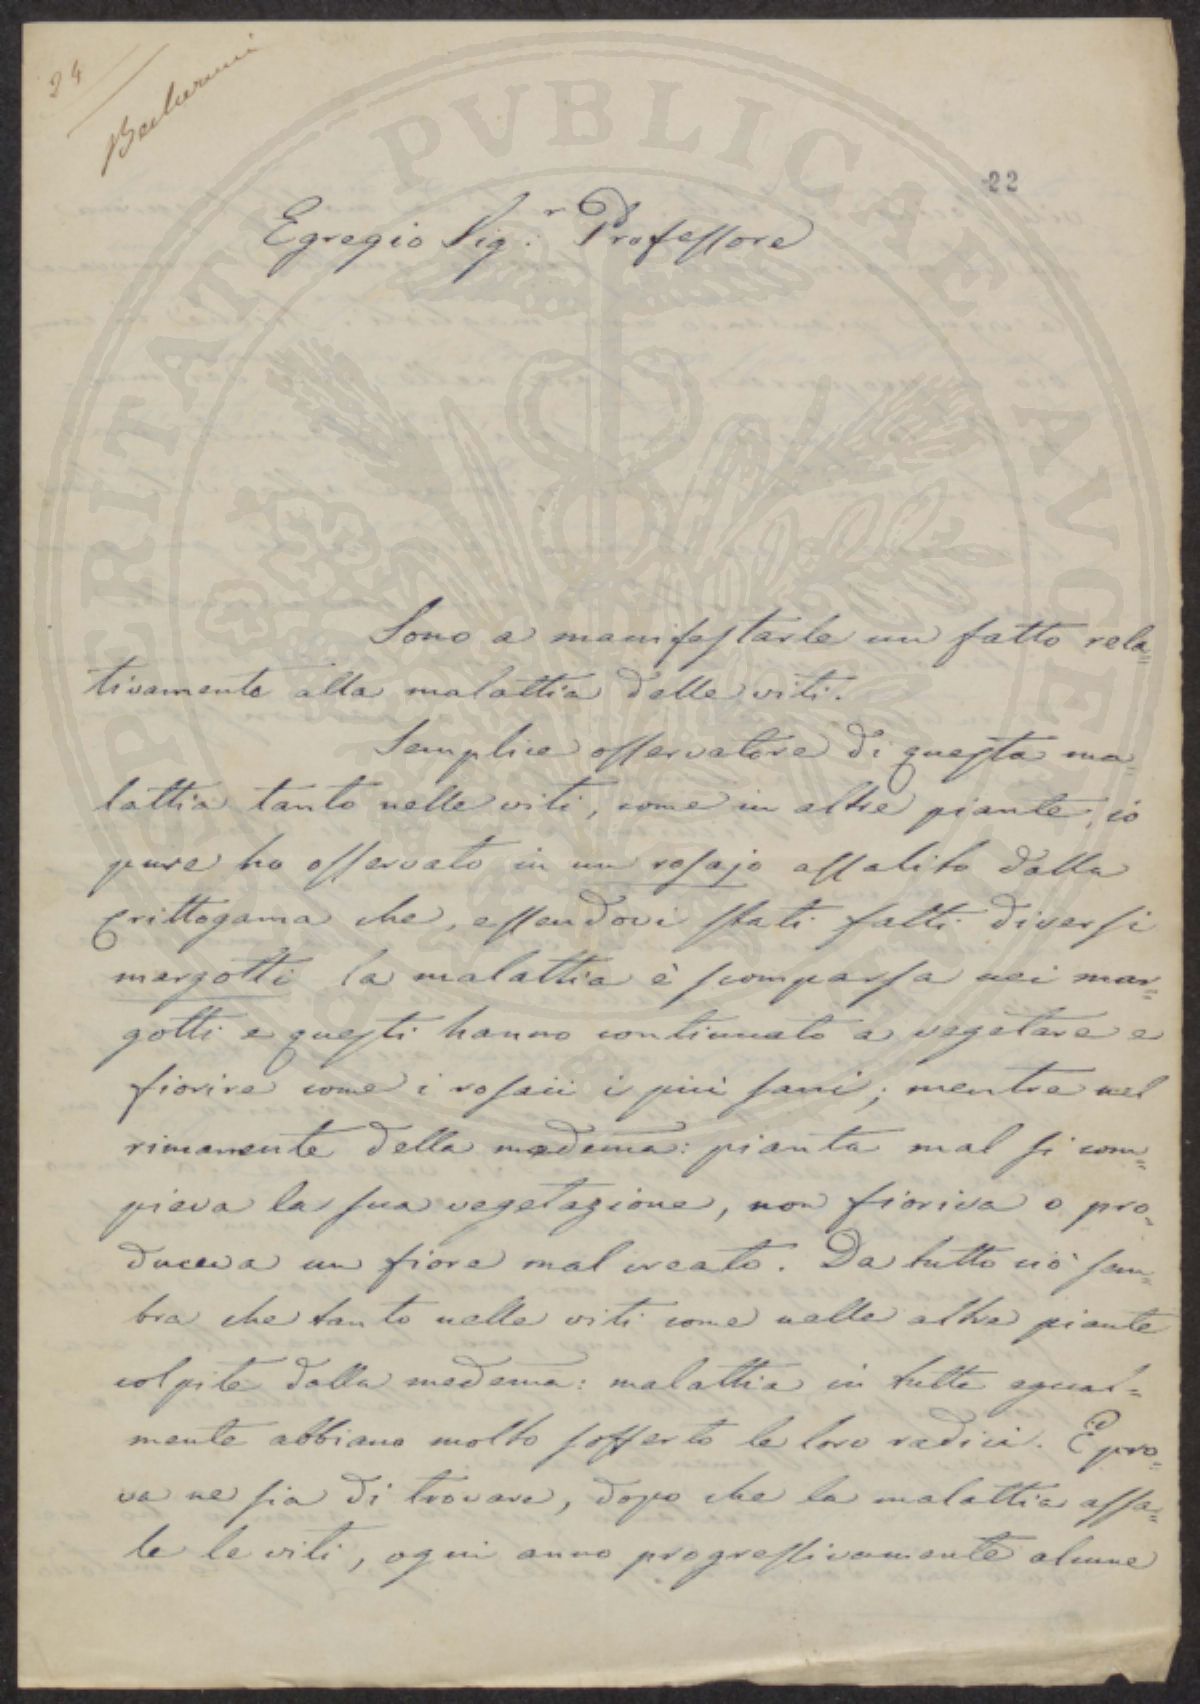 24
22
Egregio Sig.r Professore
Sono a manifestarle un fatto rela=
tivamente alla malattia delle viti.
Semplice osservatore di questa ma=
lattia tanto nelle viti, come in altre piante, io
pure ho osservato in un rosajo assalito dalla
Crittogama che, essendovi stati fatti diversi
margotti la malattia è scomparsa nei mar=
gotti e questi hanno continuato a vegetare e
fiorire come i rosaii i più sani; mentre nel
rimanente della medema: pianta mal si com=
pieva la sua vegetazione, non fioriva o pro=
duceva un fiore mal creato. Da tutto ciò sem=
bra che tanto nelle viti come nelle altre piante
colpite dalla medema: malattia in tutte egual=
mente abbiano molto sofferto le loro radici. E pro=
va ne sia di trovare, dopo che la malattia assa=
le le viti, ogni anno progressivamente alcune
PVBLICAE